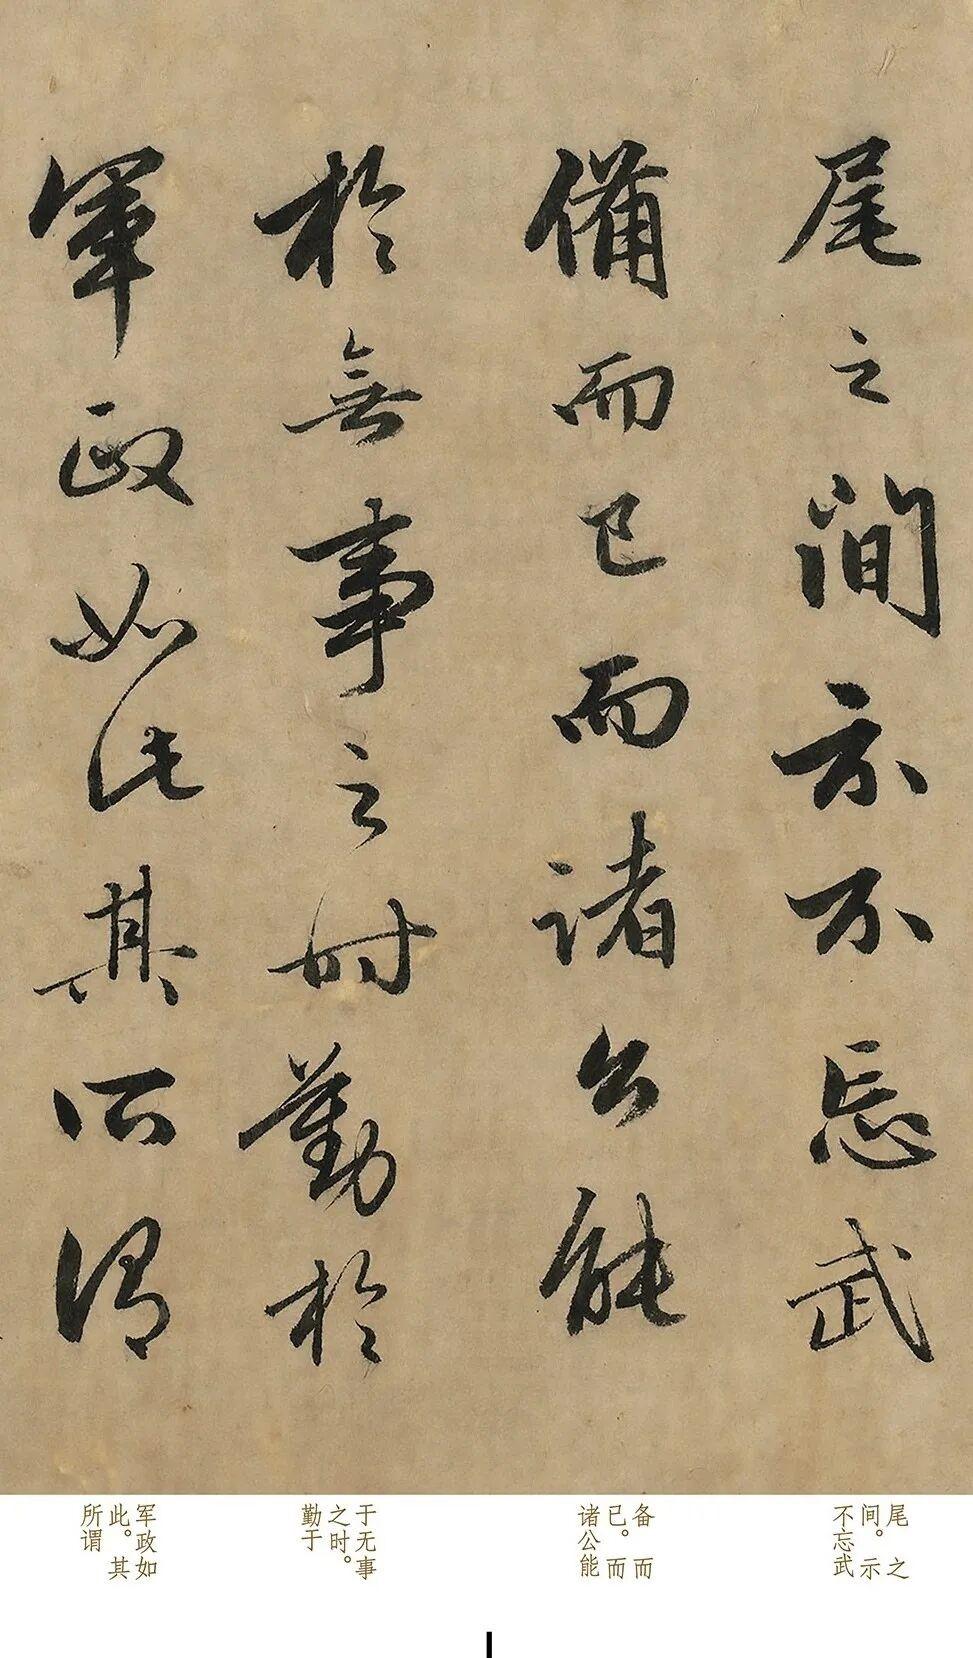 尾之間示不忘武
備而已而諸公能
於無事之時勤於
軍政如此其所謂
尾之
间。示
不忘武
备而
已。而
诸公能
于无事
之时。
勤于
军政如
此。其
所谓